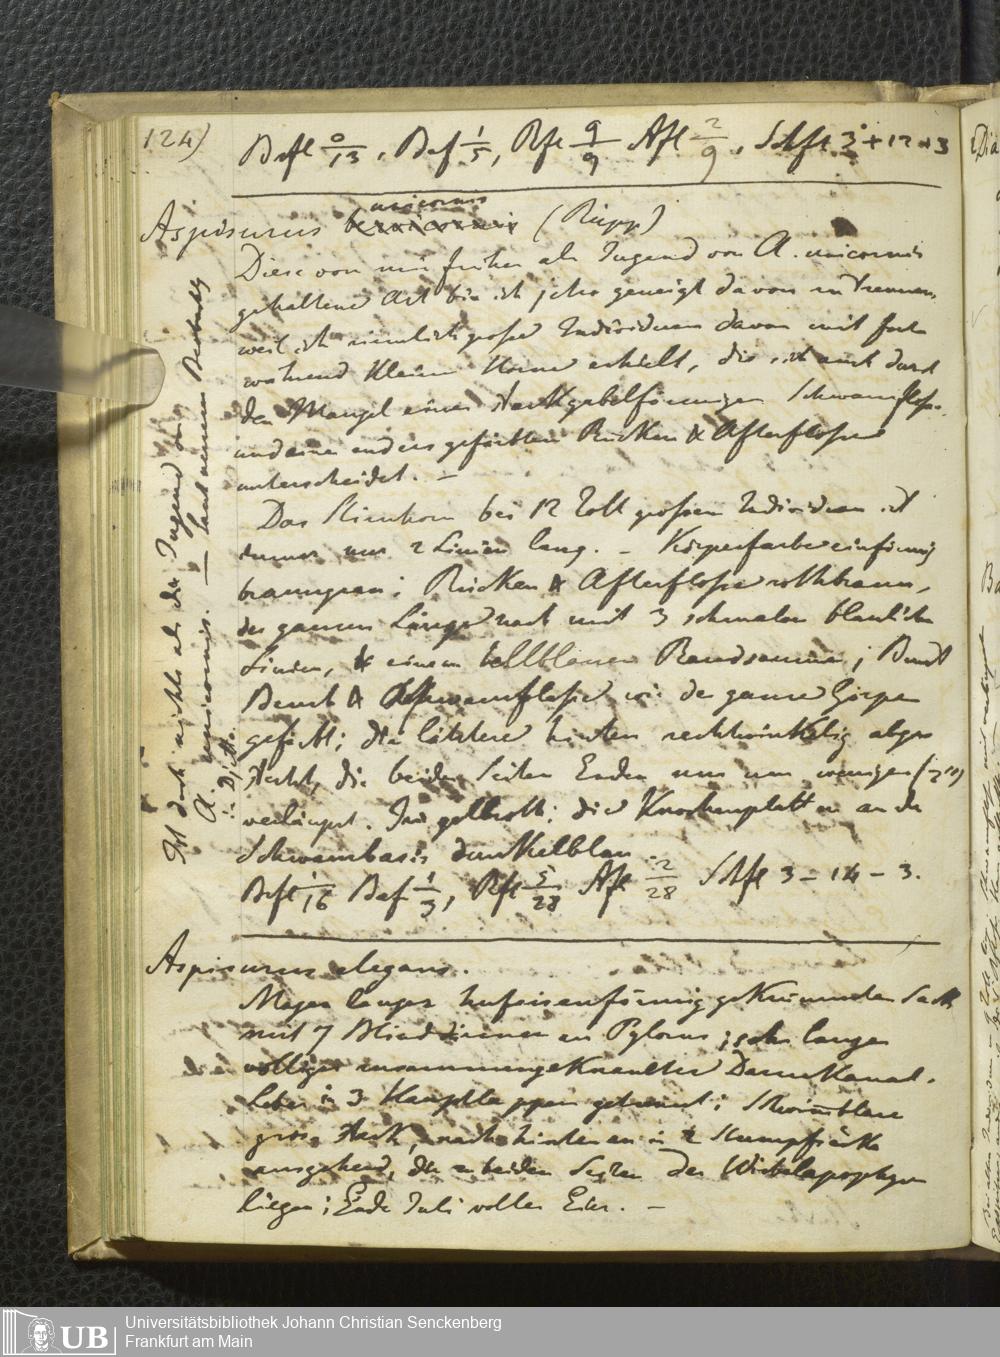 124)
Brfl 0/13, Baf 1/5, Rfl 9/9 Afl 2/9, Schfl 3 + 12 + 3
unicornis
Aspisurus (Rüpp)
Diese von mir früher als Jugend von A. unicornis
gehaltene Art bin ich jetzo geneigt davon zu trennen,
weil ich ziemlich grosse Individuen davon mit fort
während kleinem Horne erhielt, die sich auch durch
den Mangel einer starkgabelförmigen Schwanzflosse
und eine anders gefärbten Rücken & Afterflosse
unterscheidet. –
Das Stirnhorn bei 12 Zoll grossen Individuen ist
immer nur 2 Linien lang. – Körperfarbe einförmig
braungrau; Rücken & Afterflosse rothbraun,
der ganzen Länge nach mit 3 schmalen blaulichen
Linien, & einem hellblauen Randsaume; Brust
Bauch & Schwanzflosse wie der ganze Körper
gefärbt; die letztere hinten rechtwinkelig abge
stutzt, die beiden Seiten Enden nur um weniges (2''')
verlängert. Iris gelbroth; die Knochenplatten an der
Schwanzbasis dunkelblau.
Brfl 1/16 Baf 1/3, Rfl 5/28 Afl 2/28 Schfl 3 – 14 – 3.
Aspisurus elegans.
Magen langer hufeisenförmig gekrümmter Sack
mit 7 Blinddärmen am Pylorus; sehr langer
völliger zusammengeknaulter Darmkanal.
Leber in 3 Hauptlappen getrennt; Schwimblase
gros, stark, nach hinten zu in 2 Stumpfsäcke
ausgehend, die zu beiden Seiten der Wirbelapophysen
liegen; Ende Juli voller Eier. –
Ist doch nichts als die Jugend von
A. unicornis. — laut neuen Beobachtg
in Djetta.
UB
Universitätsbibliothek Johann Christian Senckenberg
Frankfurt am Main